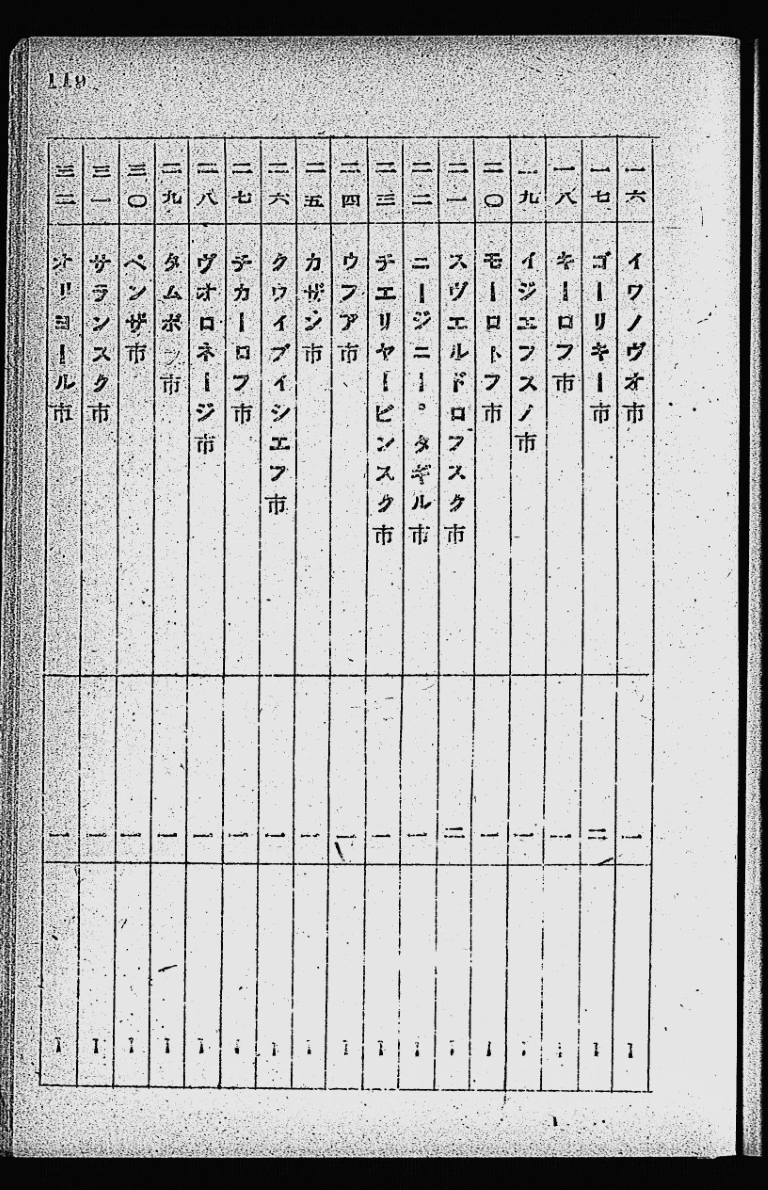 119
一六 イワノヴオ市 一 ー
一七 ゴーリキー市 二 ー
一八 キーロフ市 一 ー
一九 イジエフスノ市 一 ー
二〇 モーロトフ市 一 ー
二一 スヴエルドロフスク市 二 ー
二二 ニージニー。タギル市 一 ー
二三 チエリヤービンスク市 一 ー
二四 ウフア市 一 ー
二五 カザン市 一 ー
二六 クウイブイシエフ市 一 ー
二七 チカーロフ市 一 ー
二八 ヴオロネージ市 一 ー
二九 タムボフ市 一 ー
三〇 ペンザ市 一 ー
三一 サランスク市 一 ー
三二 オリヨール市 一 ー